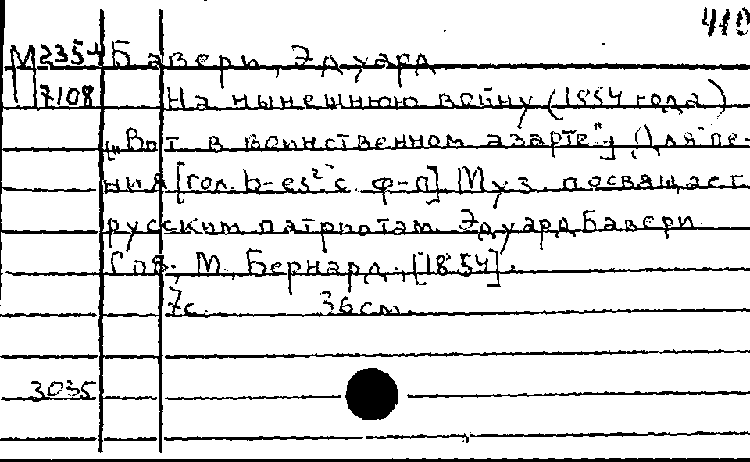 410
М 2354 Бавери, Эдуард
7108 На нынешнюю войну (1854 года)
["Вот в воинственном азарте"] Для пе-
ния [гол. h-es² с ф-п] Муз. посвящает
русским патриотам Эдуард Бавери
Спб., М. Бернард, [1854].
7с. 36см.
3035